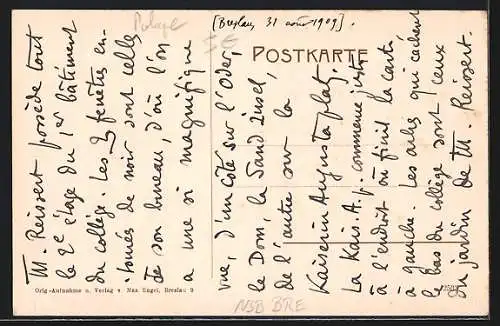 Pologne
[Breslau, 31 août 1909].
5 €
POSTKARTE
M. Reissert possède tout
le 2e étage du 1er bâtiment
du collège. Les 3 fenêtres en-
tourées de noir sont celles
de son bureau, d'où l'on
a une si magnifique
vue, d'un côté sur l'Oder,
le Dom, la Sand Insel,
de l'autre sur la
Kaiserin Augusta platz.
La Kais. A. p. commence juste
à l'endroit où finit la carte
à gauche. Les arbres qui cachent
le bas du collège sont ceux
du jardin de M. Reissert.
Orig.-Aufnahme u. Verlag v. Max Engel, Breslau 9
NSB BRE